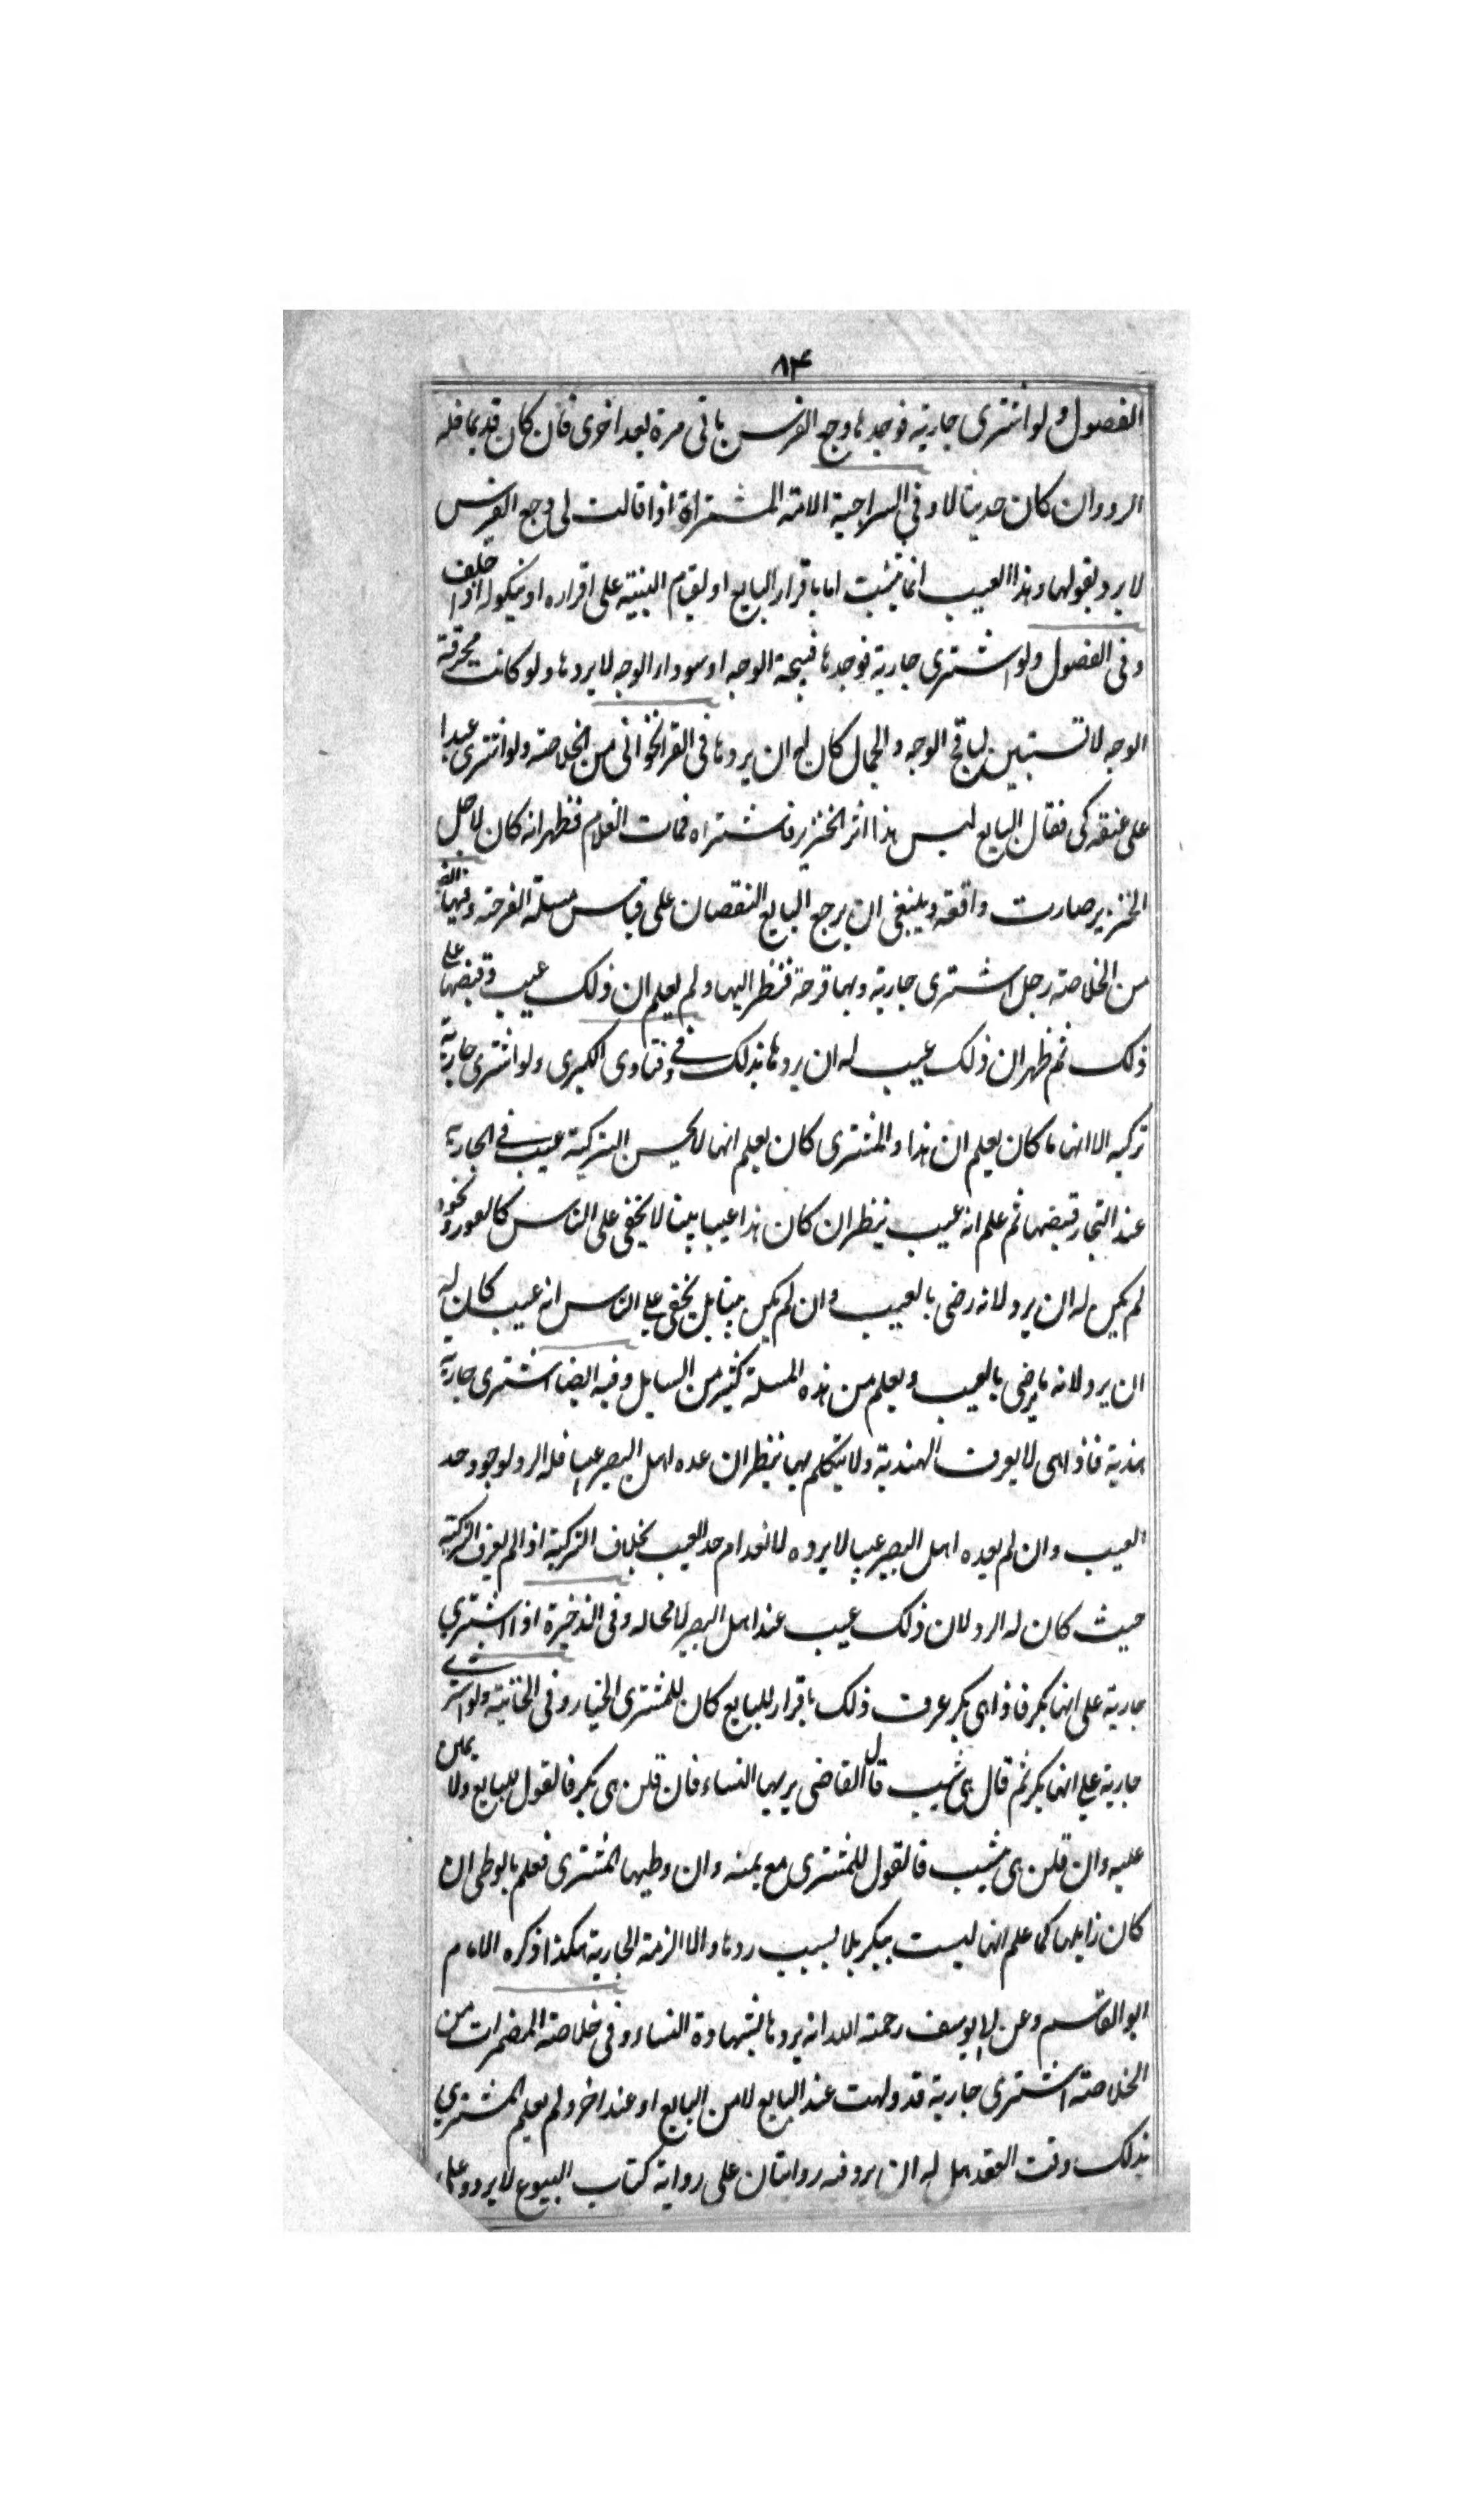 ۸۴
الفصول ولو اشترى جارية فوجدها وجع الضرس ياتى مرة بعد اخرى فان كان قديما فله
الرد وان كان حديثا لا وفي السراجية الامة المشتراة اذا قالت لى وجع الضرس
لا يرد بقولها وهذا العيب انما يثبت اما باقرار البايع او يقيم البينة على اقراره او بنكوله اذا حلف
وفى الفصول ولو اشترى جارية فوجدها قبيحة الوجه او سوداء الوجه لا يردها ولو كانت محرقة
الوجه لا تستبين لها قبح الوجه والجمال كان له ان يردها فى القراخوانى من الخلاصة ولو اشترى عبدا
على عنقه كى فقال البايع ليس هذا اثر الخنزير فاشتراه فمات الغلام فظهر انه كان لاجل
الخنزير صارت واقعة وينبغى ان يرجع البايع النقصان على قياس مسئلة القرحة وفيها ايضا
من الخلاصة رجل اشترى جارية وبها قرحة فنظر اليها ولم يعلم ان ذلك عيب وقبضها على
ذلك ثم ظهر ان ذلك عيب له ان يردها بذلك وفي فتاوى الكبرى ولو اشترى جارية
تركية الا انها ما كان يعلم ان هذا والمشترى كان يعلم انها لا يحسن التركية عيب في الجارية
عند التجار قبضها ثم علم انه عيب ينظر ان كان هذا عيبا بينا لا يخفى على الناس كالعور ونحوه
لم يكن له ان يرد لانه رضى بالعيب وان لم يكن بينا بل يخفى على الناس انه عيب كان له
ان يرد لانه ما رضى بالعيب ويعلم من هذه المسلة كثير من المسايل وفيه ايضا اشترى جارية
هندية فاذا هى لا يعرف الهندية ولا يتكلم بها ينظر ان عده اهل البصر عيبا فله الرد لوجود حد
العيب وان لم يعده اهل البصر عيبا لا يرده لانعدام حد العيب بخلاف التركية اذا لم يعرف التركية
حيث كان له الرد لان ذلك عيب عند اهل البصر لا محاله وفى الذخيرة اذا اشترى
جارية على انها بكر فاذا هى بكر عرف ذلك باقرار للبايع كان للمشترى الخيار وفى الخانية ولو اشترى
جارية على انها بكر ثم قال هى ثيب قال القاضى يريها النساء فان قلن هى بكر فالقول للبايع ولا يمين
عليه وان قلن هى ثيب فالقول للمشترى مع يمينه وان وطيها المشترى فعلم بالوطى ان
كان زايلها كما علم انها ليست ببكر بلا لبث ردها والا الزمته الجارية هكذا ذكره الامام
ابو القاسم وعن ابو يوسف رحمة الله انه يردها بشهادة النساء وفى خلاصة المضمرات من
الخلاصة اشترى جارية قد ولدت عند البايع لا من البايع او عند اخر ولم يعلم المشترى
بذلك وقت العقد هل له ان يرد فيه روايتان على رواية كتاب البيوع لا يرد وعلى